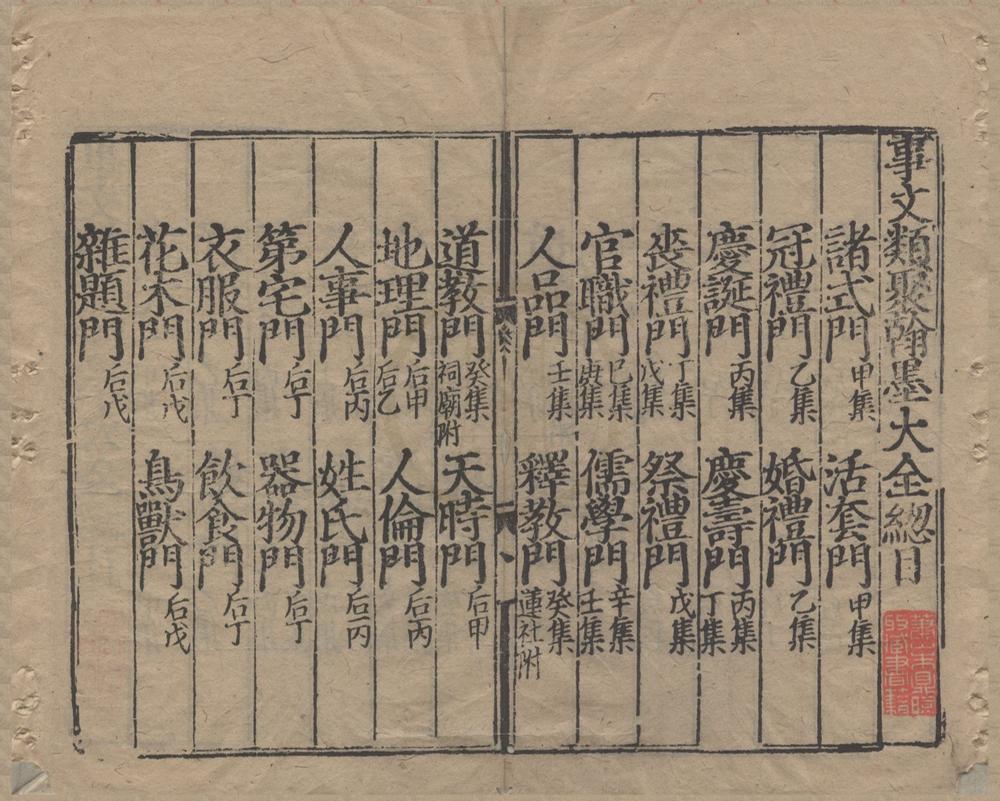 事文類聚翰墨大全總目
諸式門 甲集 活套門 甲集
冠禮門 乙集 婚禮門 乙集
慶誕門 丙集 慶壽門 丙集 丁集
喪禮門 丁集 戊集 祭禮門 戊集
官職門 巳集 庚集 儒學門 辛集 壬集
人品門 壬集 釋教門 癸集 蓮社附
道教門 癸集 祠廟附 天時門 后甲
地理門 后甲 后乙 人倫門 后丙
人事門 后丙 姓氏門 后丙
第宅門 后丁 器物門 后丁
衣服門 后丁 飲食門 后丁
花木門 后戊 鳥獸門 后戊
雜題門 后戊